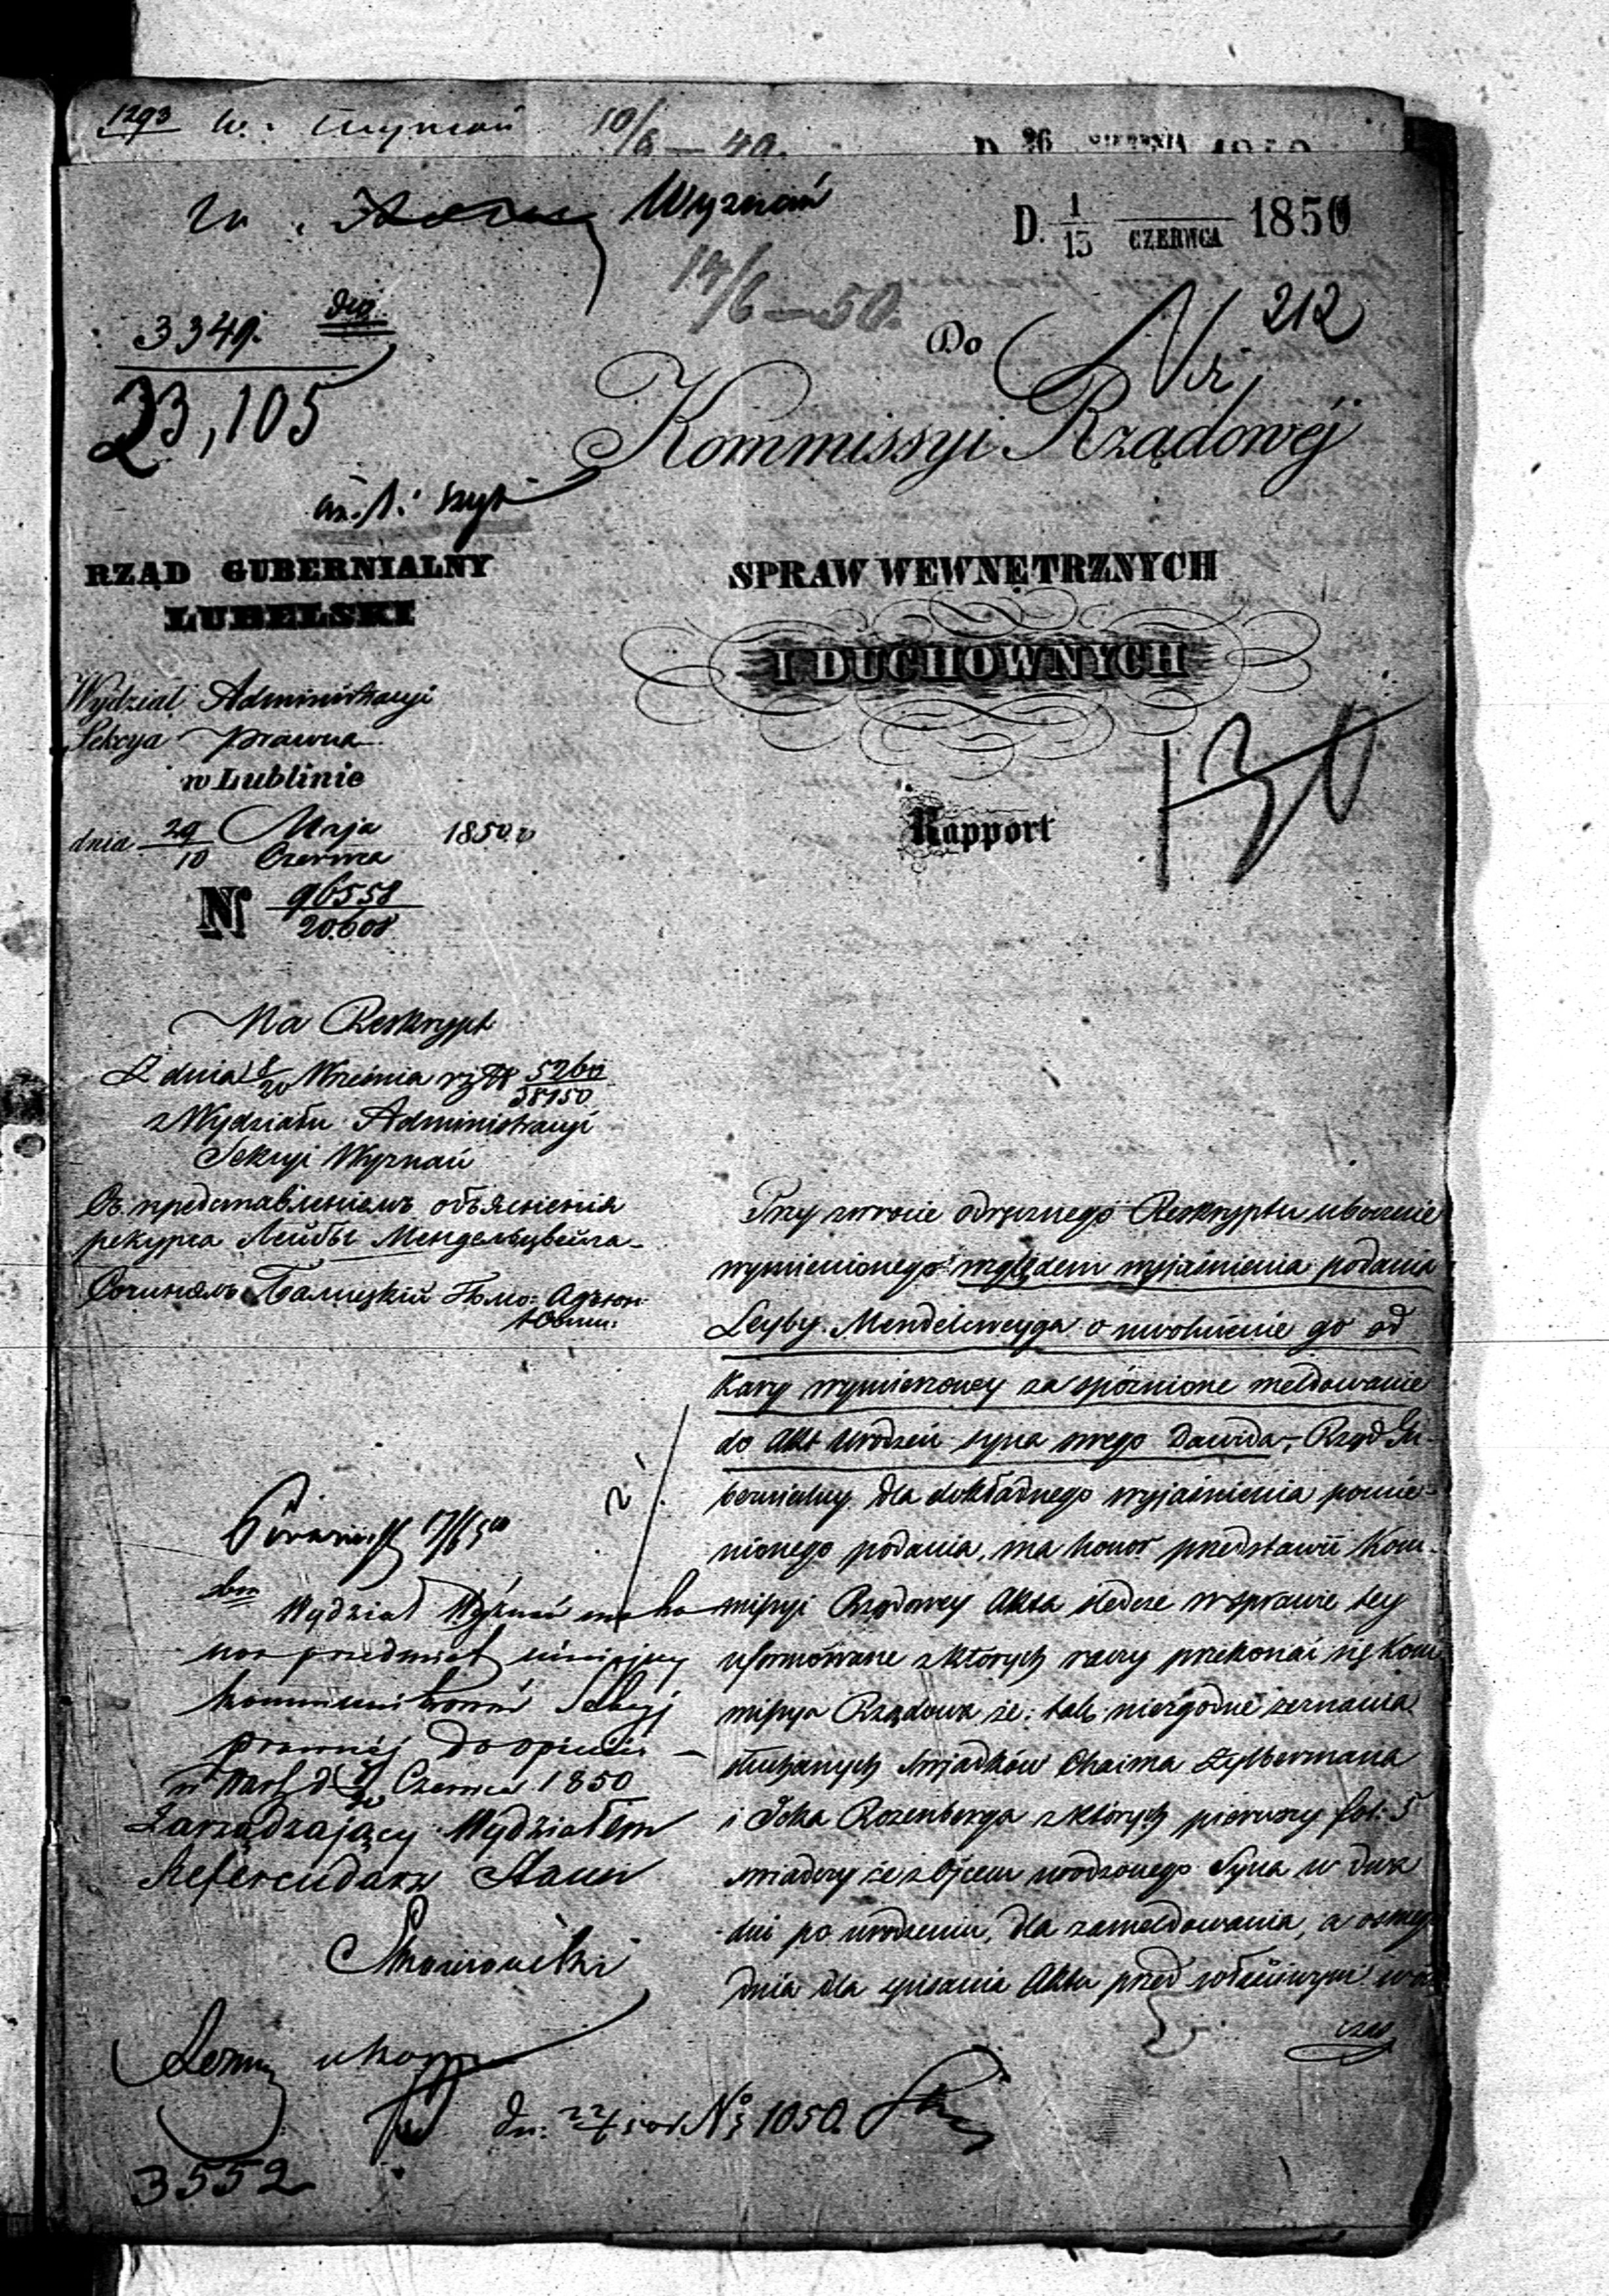 1293 W.
10/6 — 40.
D 26 SIERPNIA
Wyznań
D. 1/13 CZERWCA 1850
14/6 — 50.
3349.
23,105
Do
Nr 212
Kommissyi Rządowéj
RZĄD GUBERNIALNY
LUBELSKI
SPRAW WEWNĘTRZNYCH
I DUCHOWNYCH
Wydział Administracyi
Sekcya Prawna
w Lublinie
dnia 29/10 Maja/Czerwca 1850 r
N 96558/20608
130
Rapport
Na Reskrypt
Z dnia 8/20 Września r z N 5260/38150
z Wydziału Administracyi
Sekcyi Wyznań
Съ представленіемъ объясненія
рекурса Лейбы Мендельцвейга
Przy zwrocie odręcznego Reskryptu ubocznie
wymienionego względem wyjaśnienia podania
Leyby Mendelcweyga o uwolnienie go od
kary wymierzoney za spóźnione meldowanie
do Akt Urodzeń syna swego Dawida, Rząd Gu-
bernialny dla dokładnego wyjaśnienia pomie-
nionego podania, ma honor przedstawić Kom-
missyi Rządowey Akta śledcze w sprawie tey
uformowane z których raczy przekonać się Kom
missya Rządowa że: tak niezgodne zeznania
słuchanych świadków Chaima Zylbermana
i Icka Rozenberga z których pierwszy fol: 5
świadczy że z Ojcem urodzonego Syna w dwa
dni po urodzeniu, dla zameldowania, a osmego
dnia dla spisania Aktu przed właściwym
Wydział Wyznań ma ho
nor przedmiot niniejszy
kommunikować Sekcyi
prawnéj do opinii —
w Warsz d Czerwca 1850
Zarządzający Wydziałem
Referendarz Stanu
N° 1050.
3552